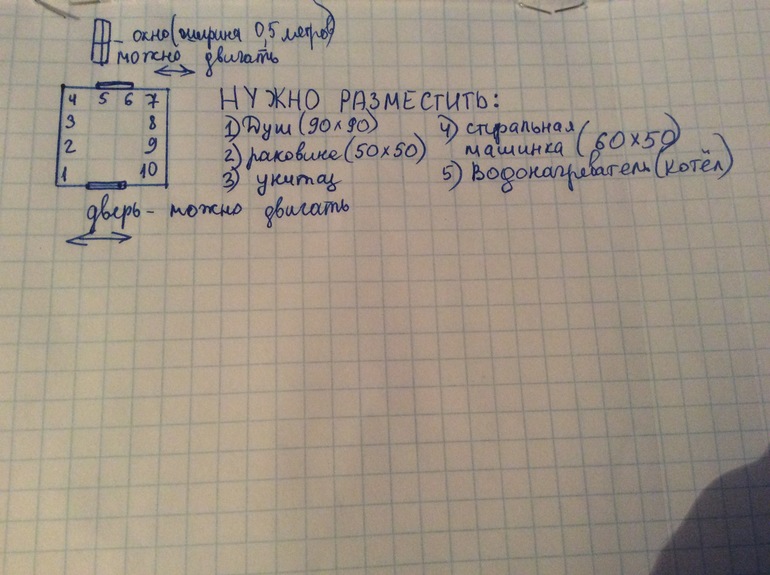 - окно (ширина 0,5 метров)
можно двигать
4 5 6 7
3 8
2 9
1 10
дверь - можно двигать
НУЖНО РАЗМЕСТИТЬ:
1) Душ (90х90)
2) раковина (50х50)
3) унитаз
4) стиральная
машинка (60х50)
5) Водонагреватель (котёл)